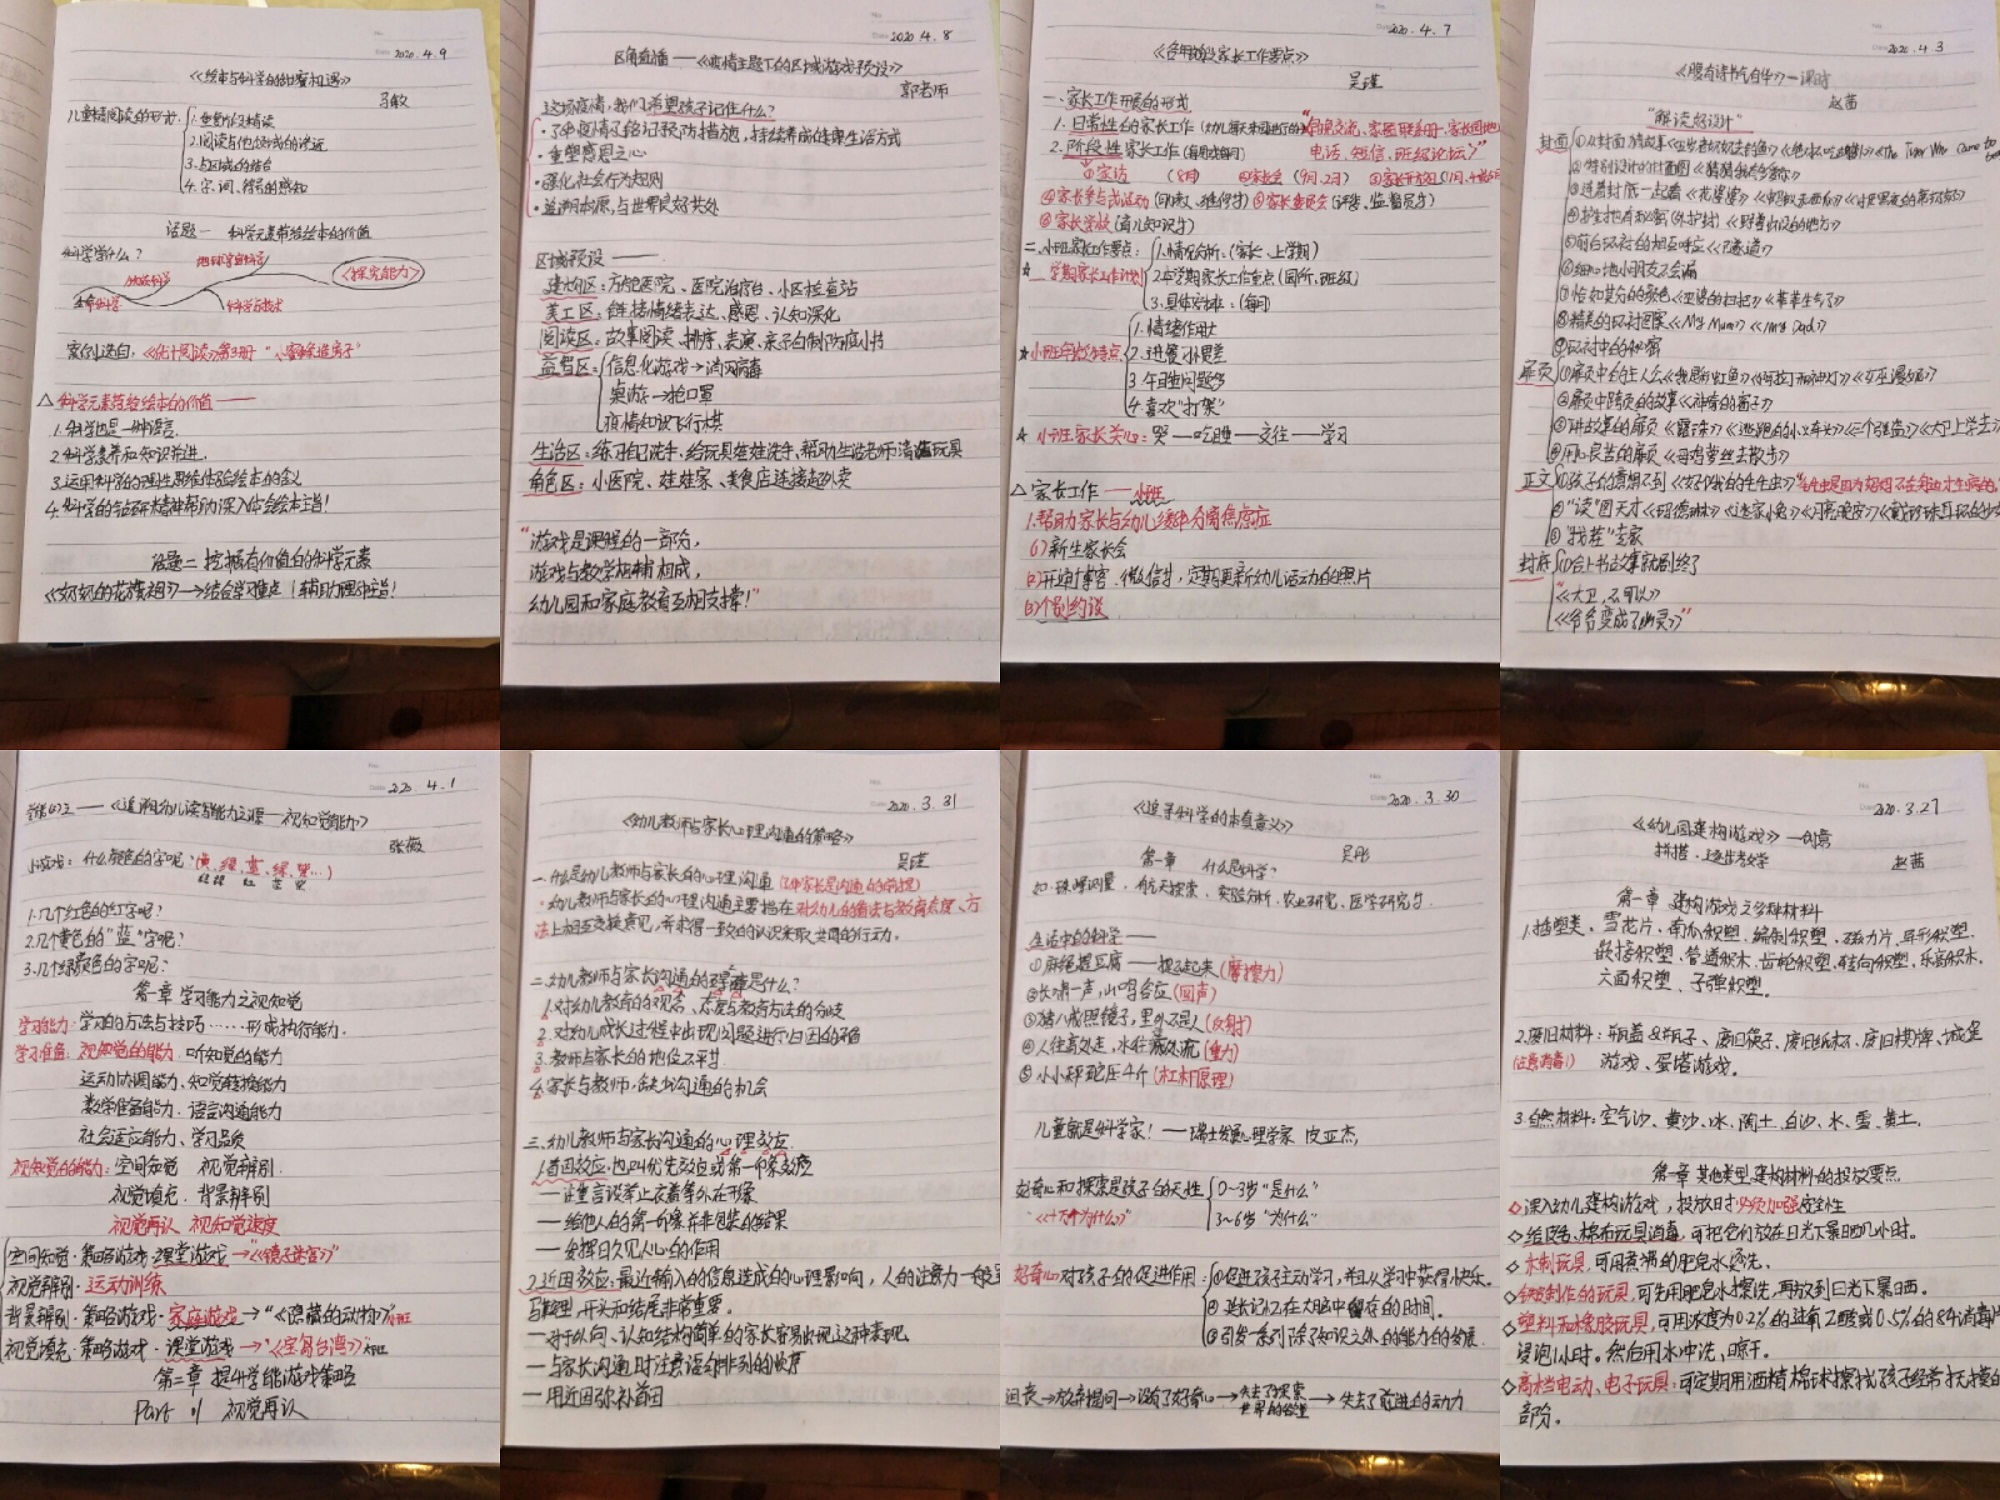 2020.4.9
《绘本与科学的甜蜜相遇》
马敏
儿童精阅读的形式:
1.重复阶段精读
2.阅读与他领域的渗透
3.与区域的结合
4.字、词、符号的感知
话题一 科学元素带给绘本的价值
科学学什么?
地球宇宙科学
物质科学
《探究能力》
生命科学
科学与技术
案例选自,《优计阅读》第3册“小蜜蜂造房子”
△科学元素带给绘本的价值——
1.科学也是一种语言.
2.科学素养和知识并进.
3.运用科学的理性思维体验绘本的含义
4.科学的钻研精神帮助深入体会绘本主旨!
话题二 挖掘有价值的科学元素
《奶奶的花旗袍》→结合学习重点(辅助理解主旨!
2020.4.8
区角直播——《疫情主题下的区域游戏预设》
郭老师
这场疫情,我们希望孩子记住什么?
·了解疫情又铭记预防措施,持续养成健康生活方式
·重塑感恩之心
·强化社会行为规则
·追溯本源,与世界良好共处
区域预设——
建构区:方舱医院、医院治疗台、小区检查站
美工区:链接情绪表达、感恩、认知深化
阅读区:故事阅读、排序、表演、亲子自制防疫小书
益智区:信息化游戏→消灭病毒
桌游→抢口罩
疫情知识飞行棋
生活区:练习自己洗手、给玩具娃娃洗手、帮助生活老师清洁玩具
角色区:小医院、娃娃家、美食店连接起外卖
“游戏是课程的一部分,
游戏与教学相辅相成,
幼儿园和家庭教育互相支撑!”
2020.4.7
《各年龄段家长工作要点》
吴瑾
一.家长工作开展的形式
1.日常性的家长工作(幼儿每天来园进行的)“个别交流、家园联系册、家长园地
2.阶段性家长工作(每周或每月) 电话、短信、班级论坛”
①家访(8月) ②家长会(9月、2月) ③家长开放日
④家长参与式活动(助教、雅俗等)⑤家长委员会(评委、监督员等)
⑥家长学校(育儿知识等)
二.小班家长工作要点:
☆学期家长工作计划
1.情况分析:(家长、上学期)
2.本学期家长工作重点(园所、班级)
3.具体安排:(每月)
☆小班年龄段特点
1.情绪作用大
2.进餐习惯差
3.午睡问题多
4.喜欢“打架”
☆小班家长关心:哭—吃睡—交往—学习
△家长工作——小班
1.帮助家长与幼儿缓解分离焦虑症
(1)新生家长会
(2)开通博客、微信等,定期更新幼儿活动的照片
(3)个别约谈
2020.4.3
《腹有诗书气自华》一课时
赵茜
“解读好设计”
封面
②特别设计的封面图《猜猜我有多爱你》
③连着封底一起看《花婆婆》
④护封也有秘密(外护封)《野兽出没的地方》
⑤前后环衬的相互呼应《隧道》
⑥细心地小朋友不会漏
⑦恰如其分的颜色《菲菲生气了》
⑧精美的环衬图案《My Mum》《My Dad》
⑨环衬中的秘密
扉页
①扉页中的主人公《我是彩虹鱼》《阿拉丁和神灯》《女巫温妮》
②扉页中跨页的故事《神奇的窗子》
④用心良苦的扉页《母鸡萝丝去散步》
正文
③“找茬”专家
封底
①合上书故事就剧终了
《大卫,不可以》
《爷爷变成了幽灵》”
2020.4.1
《追溯幼儿读写能力之源—视知觉能力》
张薇
小游戏:什么颜色的字呢:(黄、绿、蓝、绿、紫...)
1.几个红色的红字呢?
2.几个黄色的“蓝”字呢?
3.几个绿颜色的字呢?
第一章 学习能力之视知觉
学习能力:学习的方法与技巧……形成执行能力.
学习准备:视知觉的能力、听知觉的能力
运动协调能力、知觉转换能力
数学准备能力、语言沟通能力
社会适应能力、学习品质
视知觉的能力:空间知觉 视觉辨别.
视觉填充.背景辨别
视觉再认 视知觉速度
空间知觉·策略游戏·课堂游戏→“《镜子迷宫》”
视觉辨别·运动训练
背景辨别·策略游戏·家庭游戏→“《隐藏的动物》”小班
视觉填充·策略游戏·课堂游戏→“《宝岛台湾》”大班
第二章 提升学能游戏策略
Part 01 视觉再认
2020.3.31
《幼儿教师与家长心理沟通的策略》
吴瑾
一.什么是幼儿教师与家长的心理沟通(了解家长是沟通的前提)
·幼儿教师与家长的心理沟通主要指在对幼儿的看法与教育态度、方
法上相互交换意见,并求得一致的认识采取共同的行动.
二.幼儿教师与家长沟通的障碍是什么?
1.对幼儿教育的观念、态度与教育方法的分歧
2.对幼儿成长过程中出现问题进行归因的不确
3.教师与家长的地位不平等
4.家长与教师.缺少沟通的机会
三.幼儿教师与家长沟通的心理效应.
1.首因效应:也叫优先效应或第一印象效应
—注重言谈举止衣着等外在形象
—给他人的第一印象并非包装的结果
—发挥日久见人心的作用
2.近因效应:最近输入的信息造成的心理影响,人的注意力一般呈
马鞍型,开头和结尾非常重要。
—对于外向、认知结构简单的家长容易出现这种表现
—与家长沟通时注意语句排列的顺序
—用近因弥补首因
2020.3.30
《追寻科学的本真意义》
吴彤
第一章 什么是科学?
如:珠峰测量、航天探索、实验分析、农业研究、医学研究等.
生活中的科学——
①麻绳提豆腐——提不起来(摩擦力)
②长啸一声,山鸣谷应(回声)
③猪八戒照镜子,里外不是人(反射)
④人往高处走,水往低处流(重力)
⑤小小秤砣压千斤(杠杆原理)
儿童就是科学家!——瑞士发展心理学家 皮亚杰,
好奇心和探索是孩子的天性
0~3岁“是什么”
3~6岁“为什么”
《十万个为什么》”
好奇心对孩子的促进作用:①促进孩子主动学习,并且从学习中获得快乐.
②延长记忆在大脑中留存的时间.
③引发一系列除了知识之外的能力的发展.
沮丧→放弃提问→没有了好奇心→失去了探索世界的欲望→失去了前进的动力
2020.3.27
《幼儿园建构游戏》—创意
拼搭·逐步教学 赵茜
第一章 建构游戏之多种材料
1.插塑类、雪花片、南瓜积塑、编制积塑、磁力片、异形积塑.
嵌接积塑、管道积木、齿轮积塑、转向积塑、乐高积木.
六面积塑、子弹积塑。
2.废旧材料:瓶盖&瓶子、废旧筷子、废旧纸杯、废旧棋牌、城堡
(注意消毒!) 游戏、蛋塔游戏。
3.自然材料:空气沙、黄沙、冰、陶土、白沙、水、雪、黄土.
第一章 其他类型建构材料的投放要点
◇深入幼儿建构游戏,投放时必须加强安全性
◇给皮毛、棉布玩具消毒,可把它们放在日光下暴晒几小时。
◇木制玩具,可用煮沸的肥皂水烫洗.
◇铁皮制作的玩具,可先用肥皂水擦洗,再放到日光下暴晒。
◇塑料和橡胶玩具,可用浓度为0.2%的过氧乙酸或0.5%的84消毒
浸泡1小时。然后用水冲洗、晾干。
◇高档电动、电子玩具:可定期用酒精棉球擦拭孩子经常抚摸的
部分。